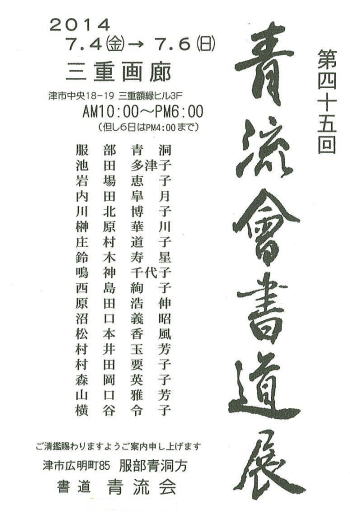 第四十五回
青流會書道展
2014
7.4(金)→7.6(日)
三重画廊
津市中央18-19 三重額縁ビル3F
AM10:00〜PM6:00
(但し6日はPM4:00まで)
服部青洞
池田多津子
岩場恵子
内田皐月
川北博子
榊原華川
庄村道子
鈴木寿星
鳴神千代子
西島絢子
原田浩伸
沼口義昭
松本香風
村井玉芳
村田要子
森岡英子
山口雅芳
横谷令子
ご清鑑賜わりますようご案内申し上げます
津市広明町85 服部青洞方
書道 青流会